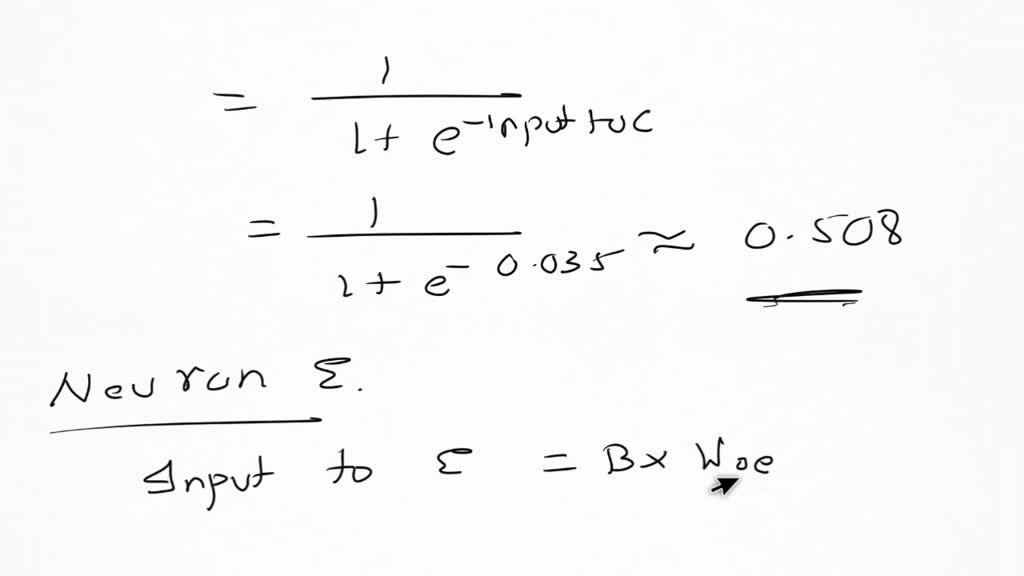 = 1 / 1 + e^-input to C
= 1 / 1 + e^-0.035 ≈ 0.508
Neuron E.
Input to E = B x W